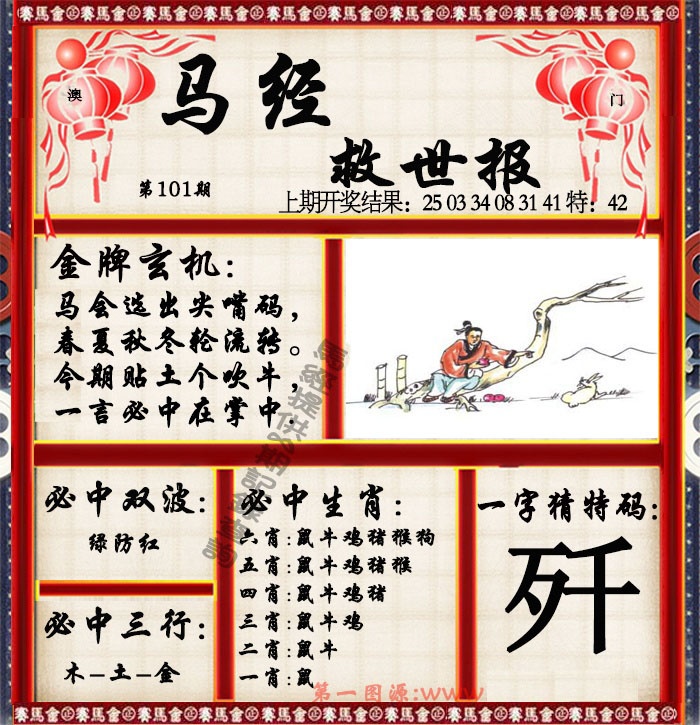 賽馬會金正賽馬會金正賽馬會金正賽馬會金
澳
门
马经
救世报
第101期
上期开奖结果：25 03 34 08 31 41 特：42
金牌玄机：
马会选出尖嘴码，
春夏秋冬轮流转。
今期贴土个吹牛，
一言必中在掌中．
必中双波：
绿防红
必中三行：
木–土–金
必中生肖：
六肖：鼠牛鸡猪猴狗
五肖：鼠牛鸡猪猴
四肖：鼠牛鸡猪
三肖：鼠牛鸡
二肖：鼠牛
一肖：鼠
一字猜特码：
歼
第一图源：www